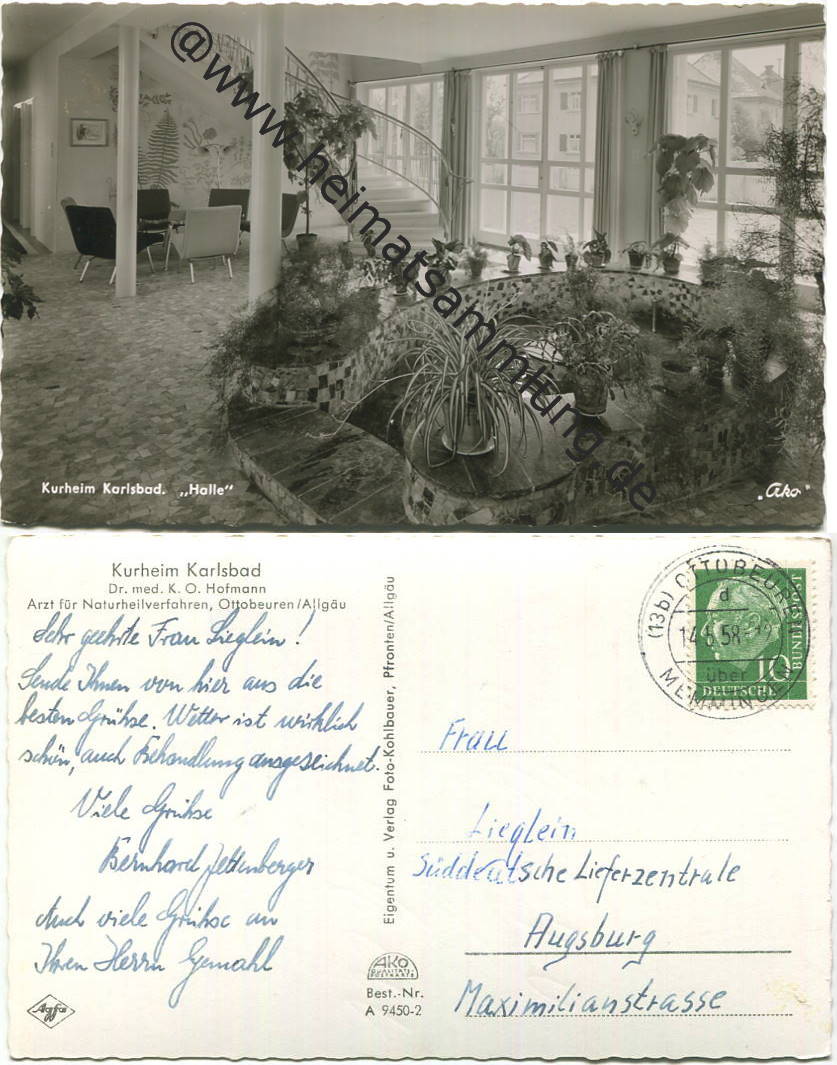 @www.heimatsammlung.de
Kurheim Karlsbad. „Halle"
„Ako"
Kurheim Karlsbad
Dr. med. K. O. Hofmann
Arzt für Naturheilverfahren, Ottobeuren/Allgäu
Sehr geehrte Frau Lieglein!
Sende Ihnen von hier aus die
besten Grühse. Wetter ist wirklich
schön, auch Behandlung ausgezeichnet.
Viele Grühse
Bernhard
Auch viele Grühse an
Ihren Herrn Gemahl
Agfa
Eigentum u. Verlag Foto-Kohlbauer, Pfronten/Allgäu
AKO
QUALITÄTS-
POSTKARTE
Best.-Nr.
A 9450-2
(13b) OTTOBEUREN
d
14.6.58
über
MEMMINGEN
10
DEUTSCHE
BUNDESPOST
Frau
Lieglein
Süddeutsche Lieferzentrale
Augsburg
Maximilianstrasse